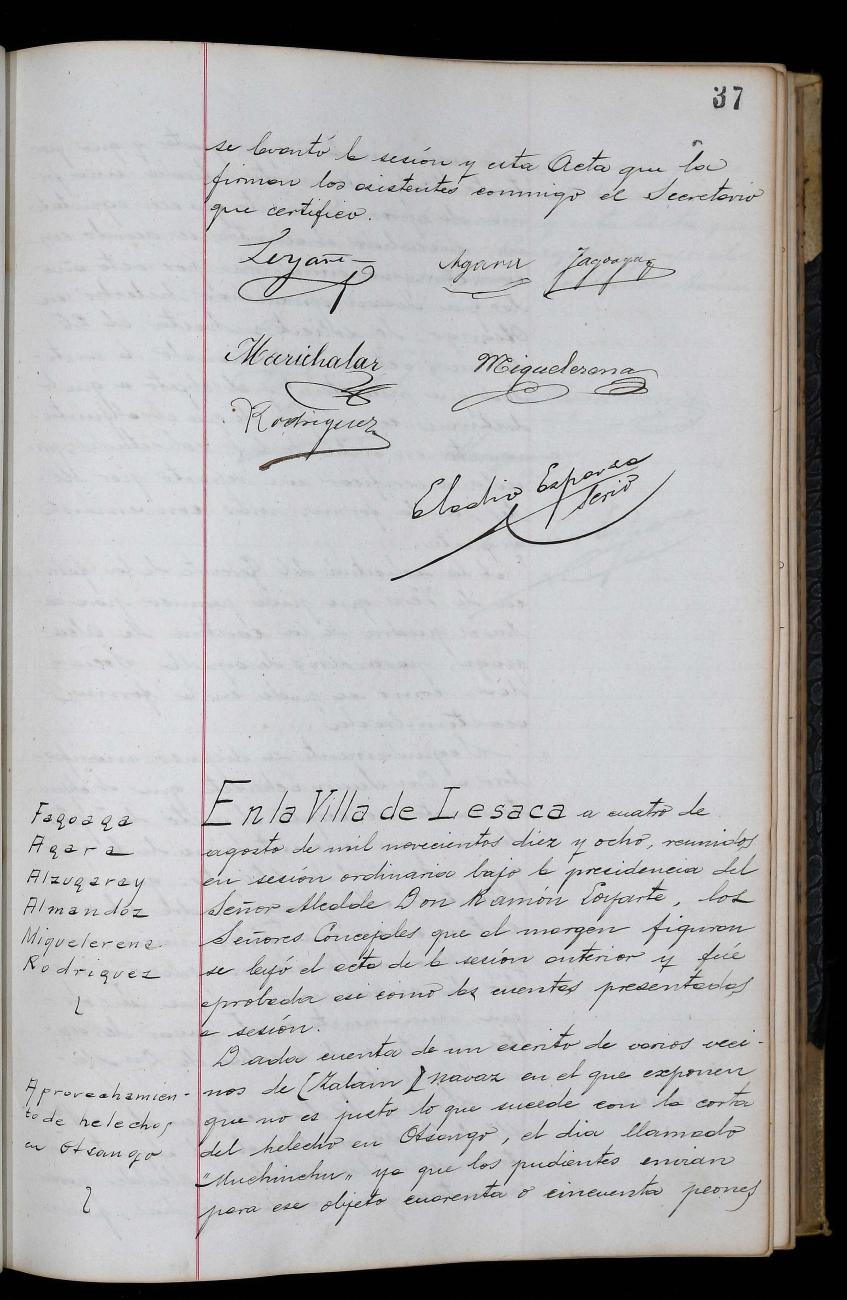 37
se levantó la sesión y esta Acta que la
firman los asistentes conmigo el Secretario
que certifico.
Loyarte
Agara Fagoaga
Marichalar Miguelerena
Rodriguez
Eladio Esparza
Serio
En la Villa de Lesaca a cuatro de
agosto de mil novecientos diez y ocho, reunidos
en sesion ordinaria bajo la presidencia del
Señor Alcalde Don Ramón Loyarte, los
Señores Concejales que al margen figuran
se leyó el acta de la sesión anterior y fué
aprobada asi como las cuentas presentadas
a sesión.
Fagoaga
Agara
Alzugaray
Almandoz
Miguelerena
Rodriguez
Dada cuenta de un escrito de varios veci-
nos de Navaz en el que exponen
que no es justo lo que sucede con la corta
del helecho en Otsango, el dia llamado
"Muchinchu" ya que los pudientes envian
para ese objeto cuarenta o cincuenta peones
Aprovechamien-
to de helechos
en Otsango